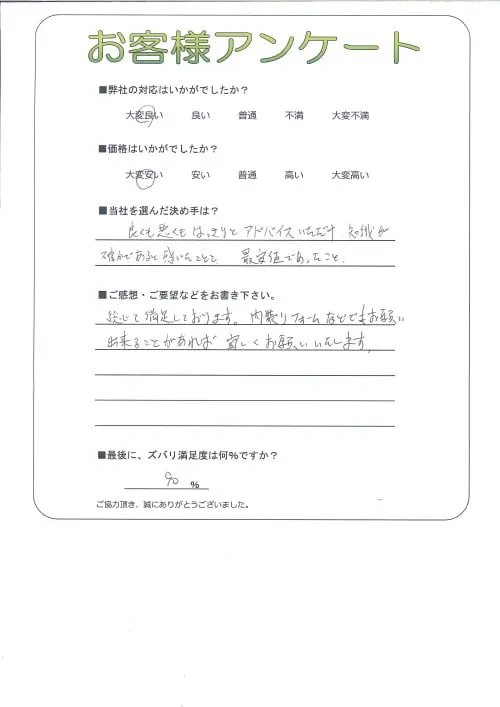 お客様アンケート
■弊社の対応はいかがでしたか？
大変良い　良い　普通　不満　大変不満
■価格はいかがでしたか？
大変安い　安い　普通　高い　大変高い
■当社を選んだ決め手は？
良くも悪くもはっきりとアドバイスいただけ 知識が
確かであると感じたことと 最安値であったこと.
■ご感想・ご要望などをお書き下さい。
総じて満足しております。内装リフォームなどでもお願い
出来ることがあれば宜しくお願いいたします。
■最後に、ズバリ満足度は何％ですか？
90 ％
ご協力頂き、誠にありがとうございました。